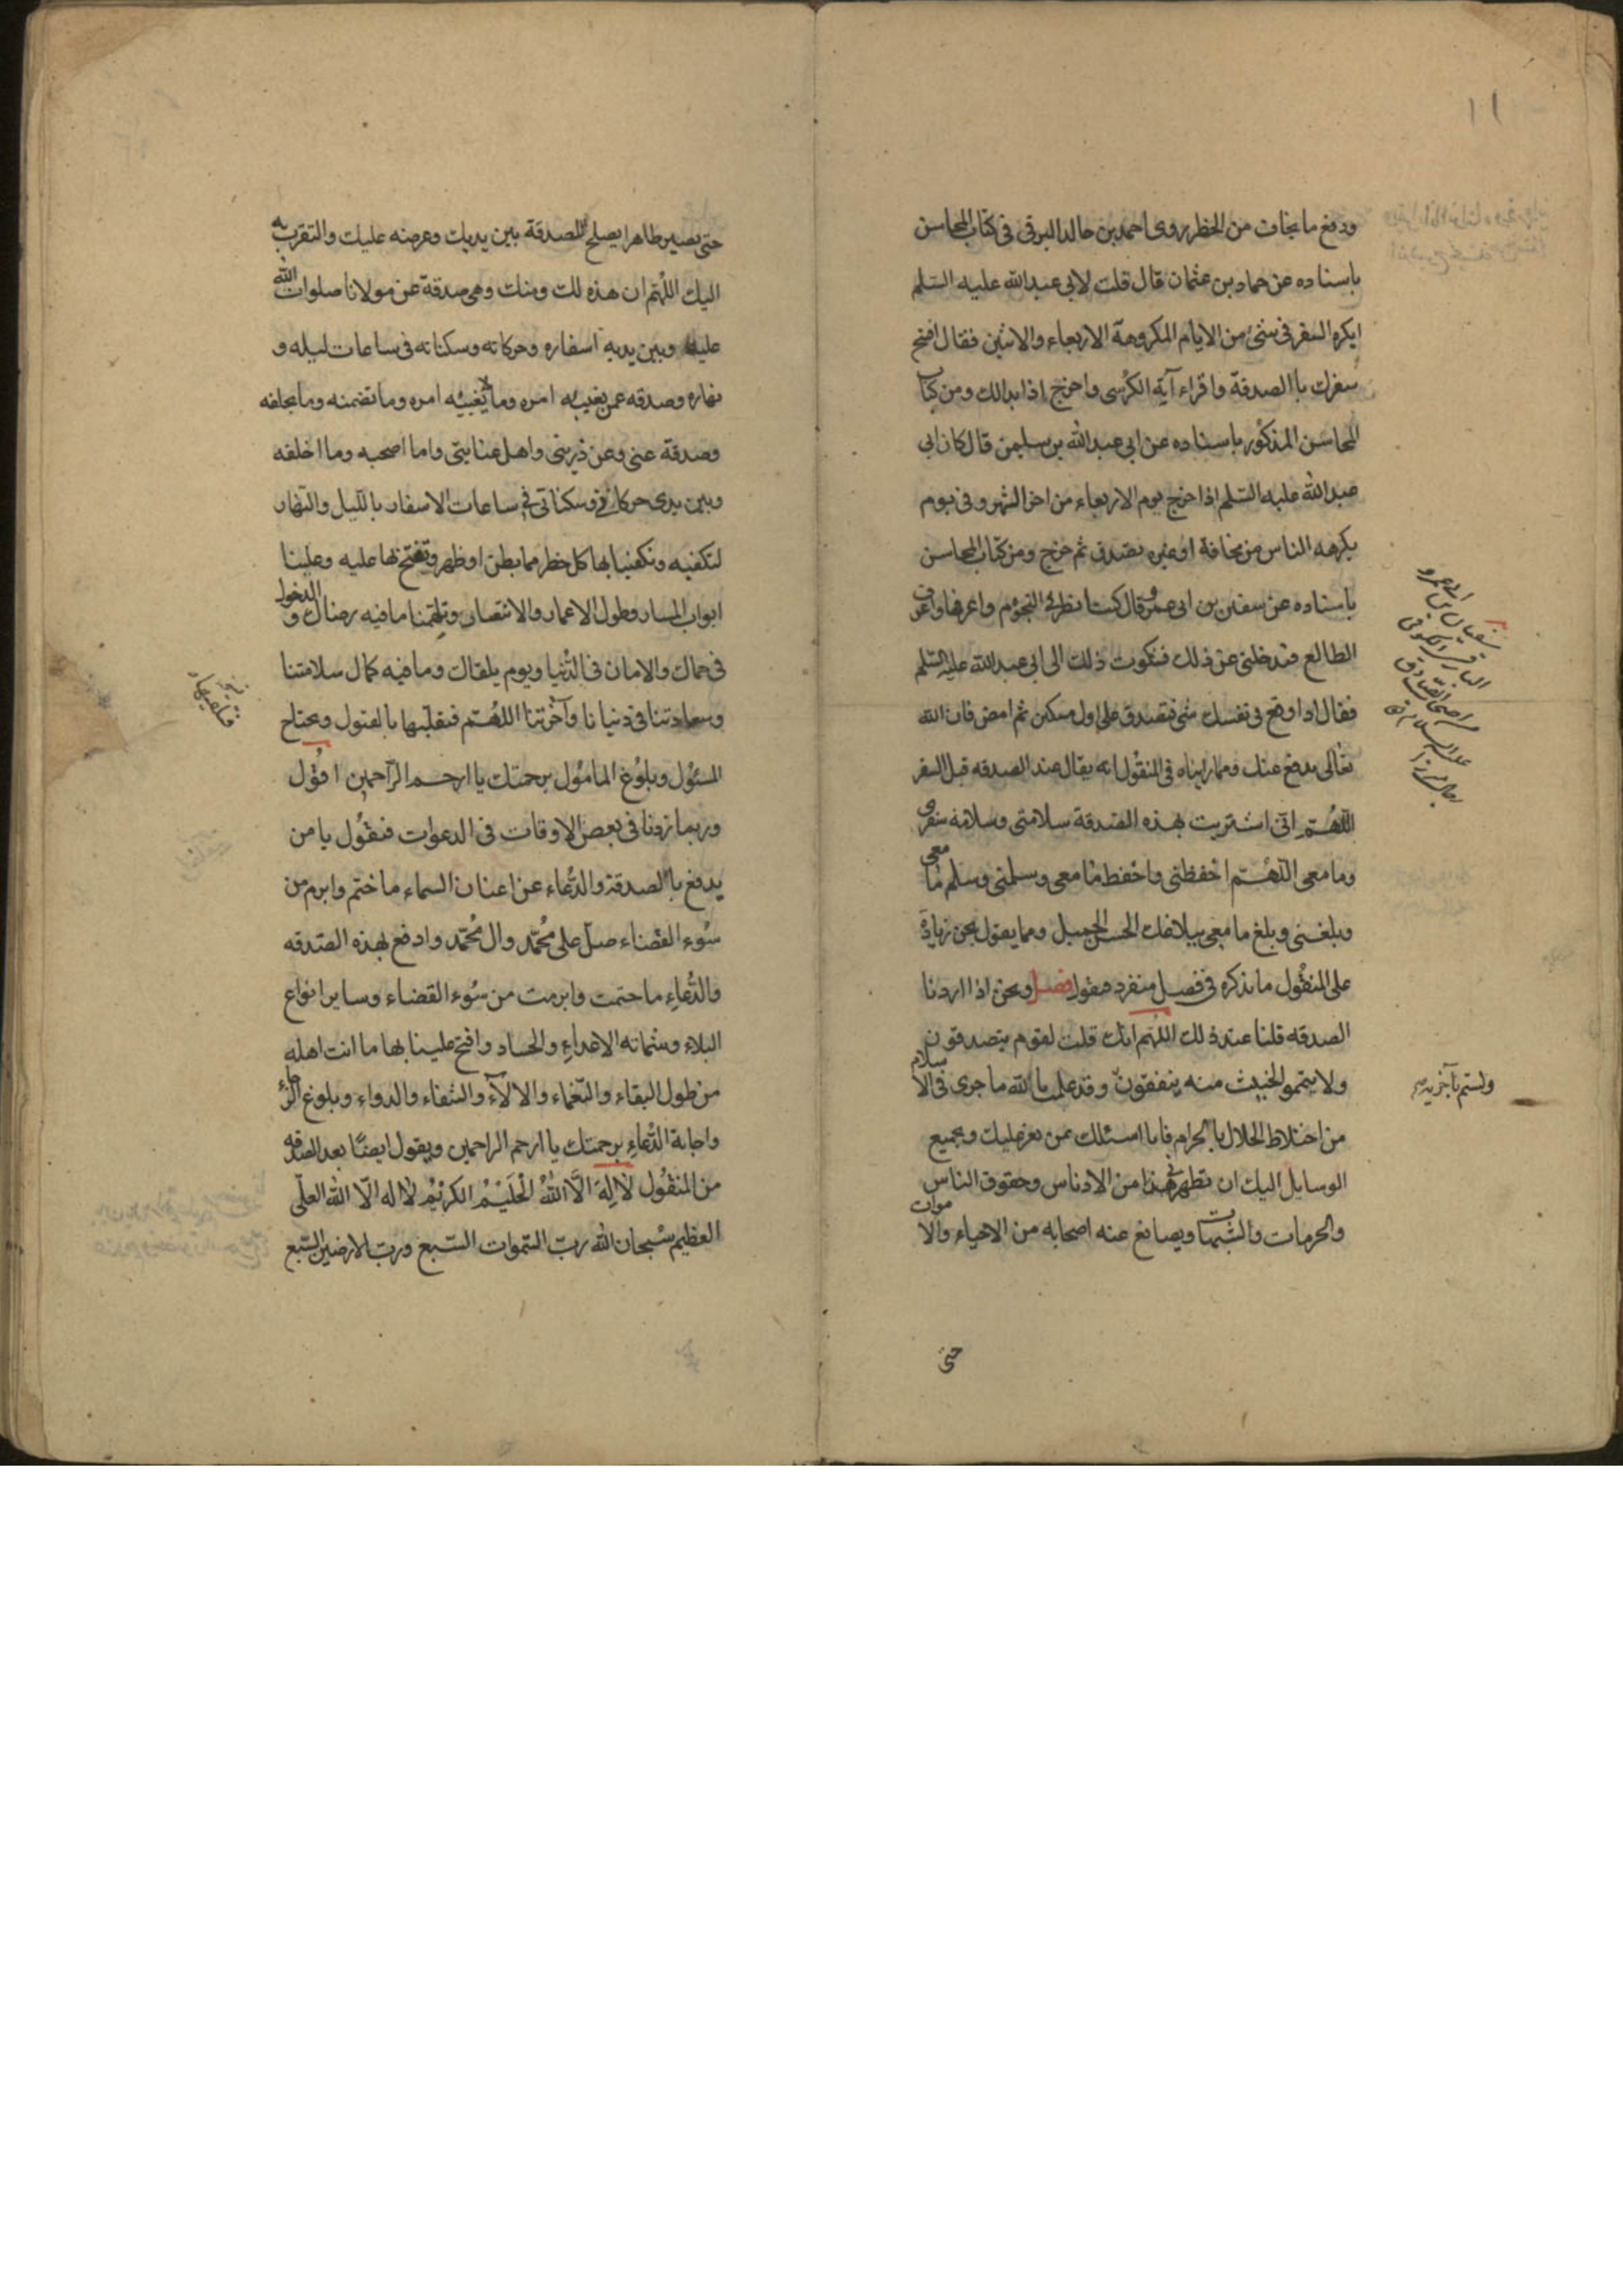 ١١
ودفع ما يخاف من الخطر روى احمد بن خالد البرقى فى كتاب المحاسن
باسناده عن حماد بن عثمان قال قلت لابى عبد الله عليه السلم
ايكره السفر فى شئ من الايام المكروهة الاربعاء والاثنين فقال افتح
سفرك بالصدقة واقراء آية الكرسى واخرج اذا بدالك ومن كتاب
المحاسن المذكور باسناده عن ابى عبد الله بن سليمن قال كان ابى
عبد الله عليه السلم اذا خرج يوم الاربعاء من اخر الشهر وفى يوم
يكرهه الناس من مخافة او غيره تصدق ثم خرج ومن كتاب المحاسن
باسناده عن سفين بن ابى عمر قال كنت انظر فى النجوم واعرفها واعرف
الطالع فيدخلنى عن ذلك فشكوت ذلك الى ابى عبد الله عليه السلم
فقال اذا وقع فى نفسك شئ فتصدق على اول مسكين ثم امض فان الله
تعالى يدفع عنك ومما رايناه فى المنقول انه يقال عند الصدقه قبل السفر
اللهم انى اشتريت بهذه الصدقة سلامتى وسلامة سفرى
وما معى اللهم احفظنى واحفظ ما معى وسلمنى وسلم ما معى
وبلغنى وبلغ ما معى ببلاغك الحسن الجميل ومما يقول نحن زيادة
على المنقول ما نذكره فى فصل منفرد فنقول فصل ونحن اذا اردنا
الصدقه قلنا عند ذلك اللهم انك قلت لقوم يتصدقون
ولا يتمموا الخبيث منه ينفقون وقد علمت يا الله ما جرى فى الاسلام
ولستم بآخذيه صح
من اختلاط الحلال بالحرام فانا اسئلك بمن يعز عليك وبجميع
الوسايل اليك ان تطهر هذا من الادناس وحقوق الناس
والحرمات والشبهات ويصانع عنه اصحابه من الاحياء والاموات
حتى
حتى يصير طاهرا يصلح للصدقة بين يديك وعرضه عليك والتقرب به
اليك اللهم ان هذه لك ومنك وهى صدقة عن مولانا صلوات الله
عليه وبين يديه اسفاره وحركاته وسكناته فى ساعات ليله و
نهاره وصدقه عمن يعنيه امره وما لا يعنيه امره وما تضمنه وما يخلفه
وصدقة عنى وعن ذريتى واهل عنايتى واما اصحبه وما اخلفه
وبين يدى حركاتى وسكناتى فى ساعات الاسفار بالليل والنهار
لتكفيه وتكفينا بها كل خطر مما بطن او ظهر وتفتح بها عليه وعلينا
ابواب المسار وطول الاعمار والانتصار وتلهمنا ما فيه رضاك والدخول
فى حماك والامان فى الدنيا ويوم يلقاك وما فيه كمال سلامتنا
وسعادتنا فى دنيانا وآخرتنا اللهم فتقبلها بالقبول ونجاح
المسئول وبلوغ المامول برحمتك يا ارحم الراحمين اقول
وربما زدنا فى بعض الاوقات فى الدعوات فنقول يا من
يدفع بالصدقة والدعاء عن اعنان السماء ما ختم وابرم من
سوء القضاء صل على محمد وال محمد وادفع بهذه الصدقه
والدعاء ما حتمت وابرمت من سوء القضاء وساير انواع
البلاء وشماته الاعداء والحساد وافتح علينا بها ما انت اهله
من طول البقاء والنعماء والالآء والشفاء والدواء وبلوغ الرجاء
واجابة الدعاء برحمتك يا ارحم الراحمين ويقول ايضا بعد الصدقه
من المنقول لا اله الا الله الحليم الكريم لا اله الا الله العلى
العظيم سبحان الله رب السموات السبع ورب الارضين السبع